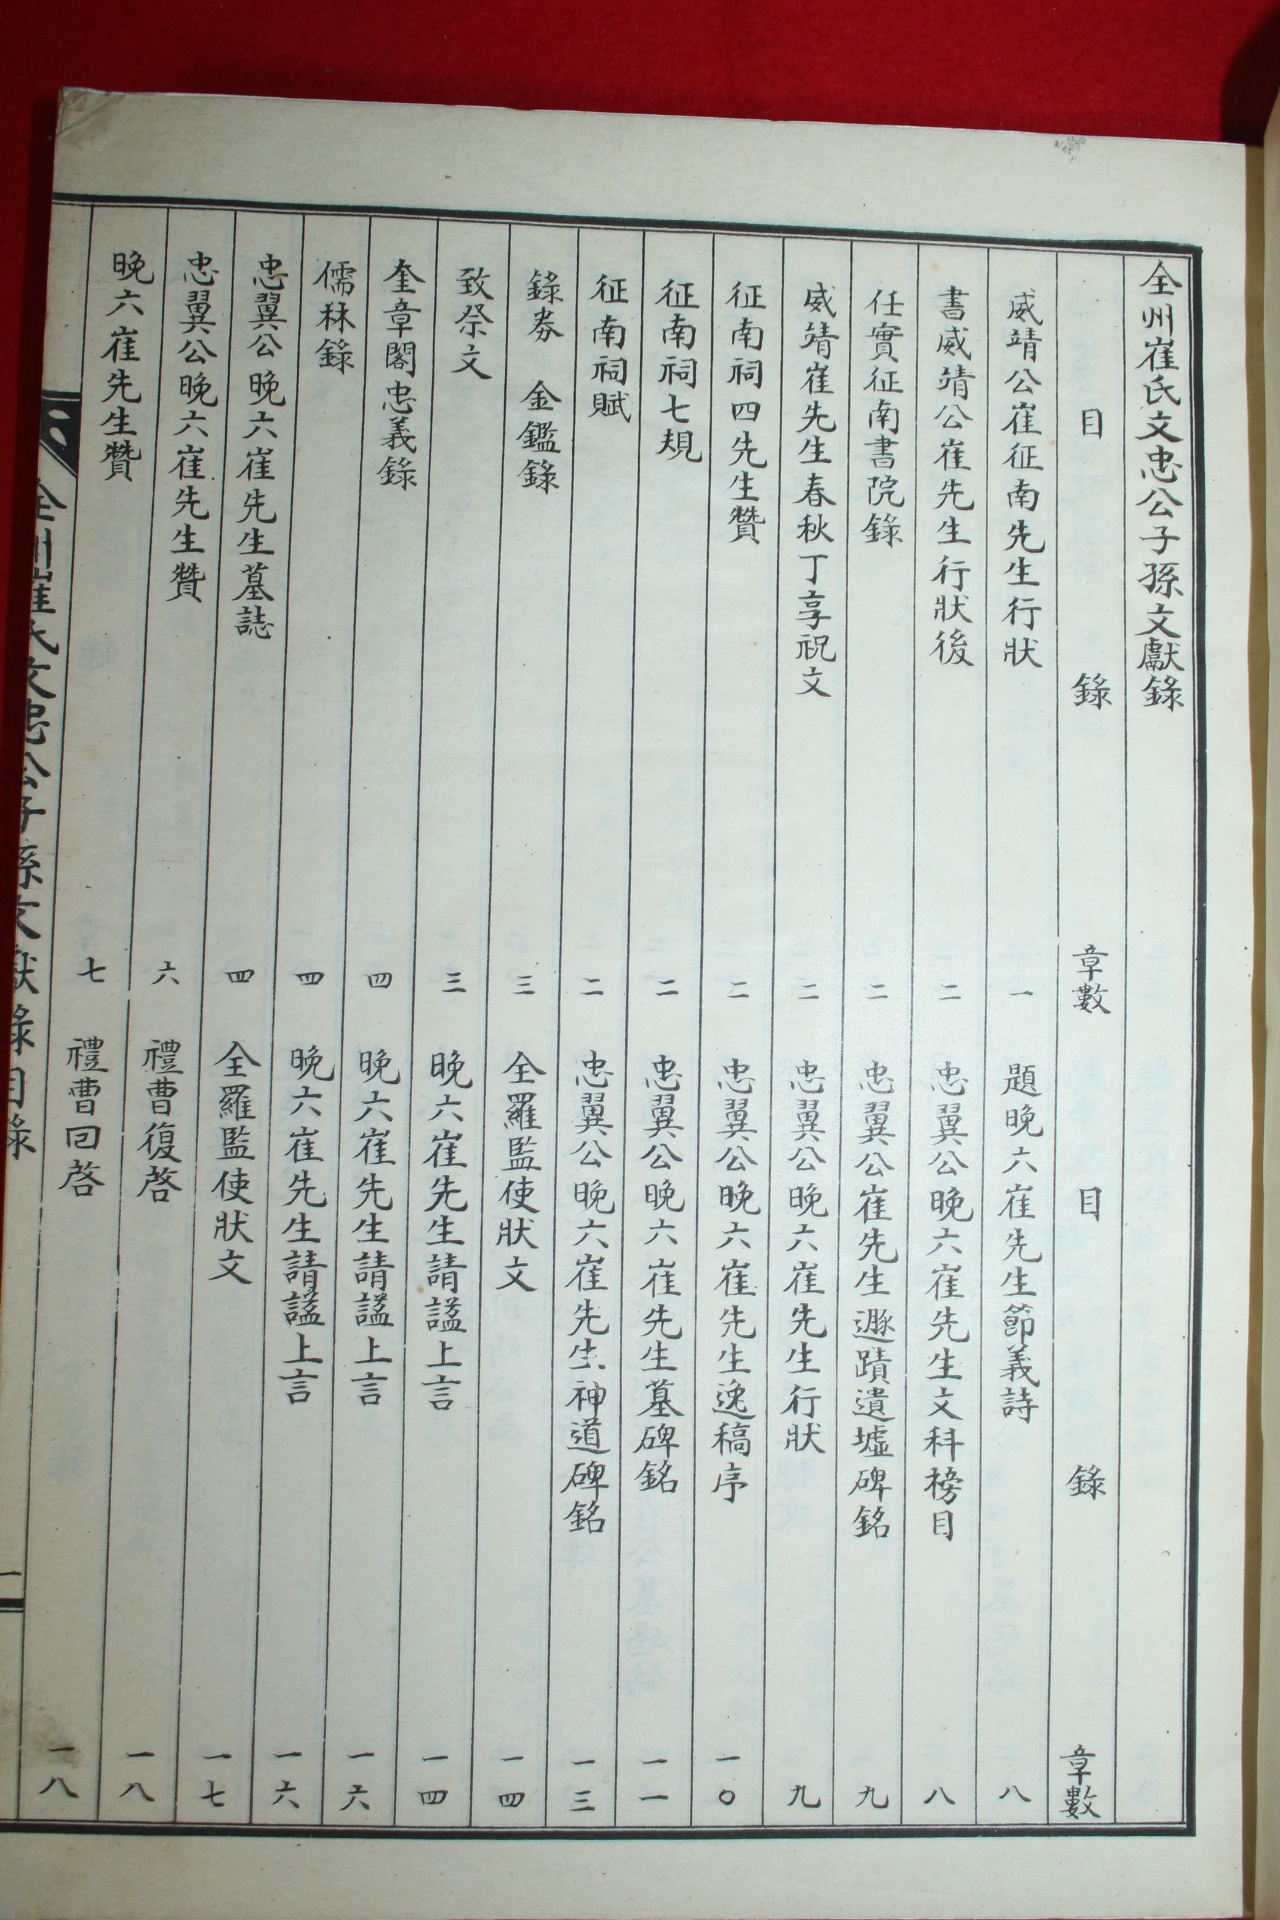 全州崔氏文忠公子孫文獻錄
目 錄 章數 目 錄 章數
威靖公崔征南先生行狀 一 題晚六崔先生節義詩 八
書威靖公崔先生行狀後 二 忠翼公晚六崔先生文科榜目 八
任實征南書院錄 二 忠翼公崔先生遯蹟遺墟碑銘 九
威靖崔先生春秋丁享祝文 二 忠翼公晚六崔先生行狀 九
征南祠四先生贊 二 忠翼公晚六崔先生逸稿序 一〇
征南祠七規 二 忠翼公晚六崔先生墓碑銘 一一
征南祠賦 二 忠翼公晚六崔先生神道碑銘 一三
錄券 金鑑錄 三 全羅監使狀文 一四
致祭文 三 晚六崔先生請諡上言 一四
奎章閣忠義錄 四 晚六崔先生請諡上言 一六
儒林錄 四 晚六崔先生請諡上言 一六
忠翼公晚六崔先生墓誌 四 全羅監使狀文 一七
忠翼公晚六崔先生贊 六 禮曹復啓 一八
晚六崔先生贊 七 禮曹回啓 一八
全州崔氏文忠公子孫文獻錄目錄 一